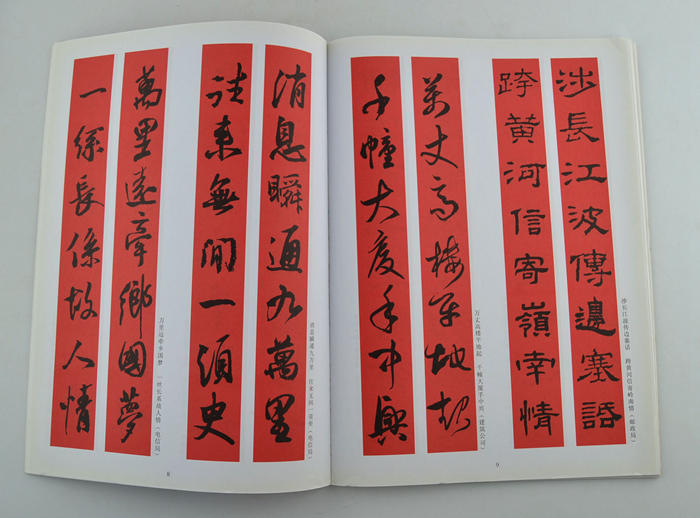 消息瞬通九萬里
往來無間一須臾
消息瞬通九万里 往来无间一须臾（电信局）
萬里遠牽鄉國夢
一絲長係故人情
万里远牵乡国梦 一丝长系故人情（电信局）
8
涉長江波傳邊塞話
跨黄河信寄嶺南情
涉长江波传边塞话 跨黄河信寄岭南情（邮政局）
萬丈高楼平地起
千幢大廈手中興
万丈高楼平地起 千幢大厦手中兴（建筑公司）
9